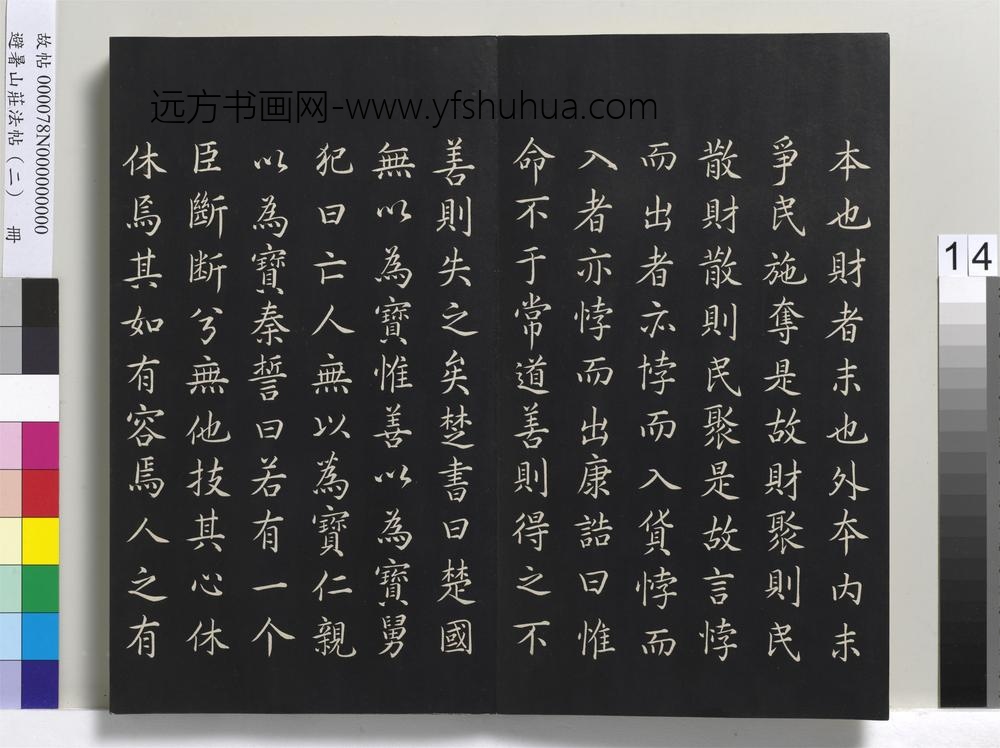 本也財者末也外本内末
爭民施奪是故財聚則民
散財散則民聚是故言悖
而出者亦悖而入貨悖而
入者亦悖而出康誥曰惟
命不于常道善則得之不
善則失之矣楚書曰楚國
無以為寶惟善以為寶舅
犯曰亡人無以為寶仁親
以為寶秦誓曰若有一个
臣斷斷兮無他技其心休
休焉其如有容焉人之有
远方书画网-www.yfshuhua.com
故帖 000078N000000000
避暑山莊法帖（二） 冊
14